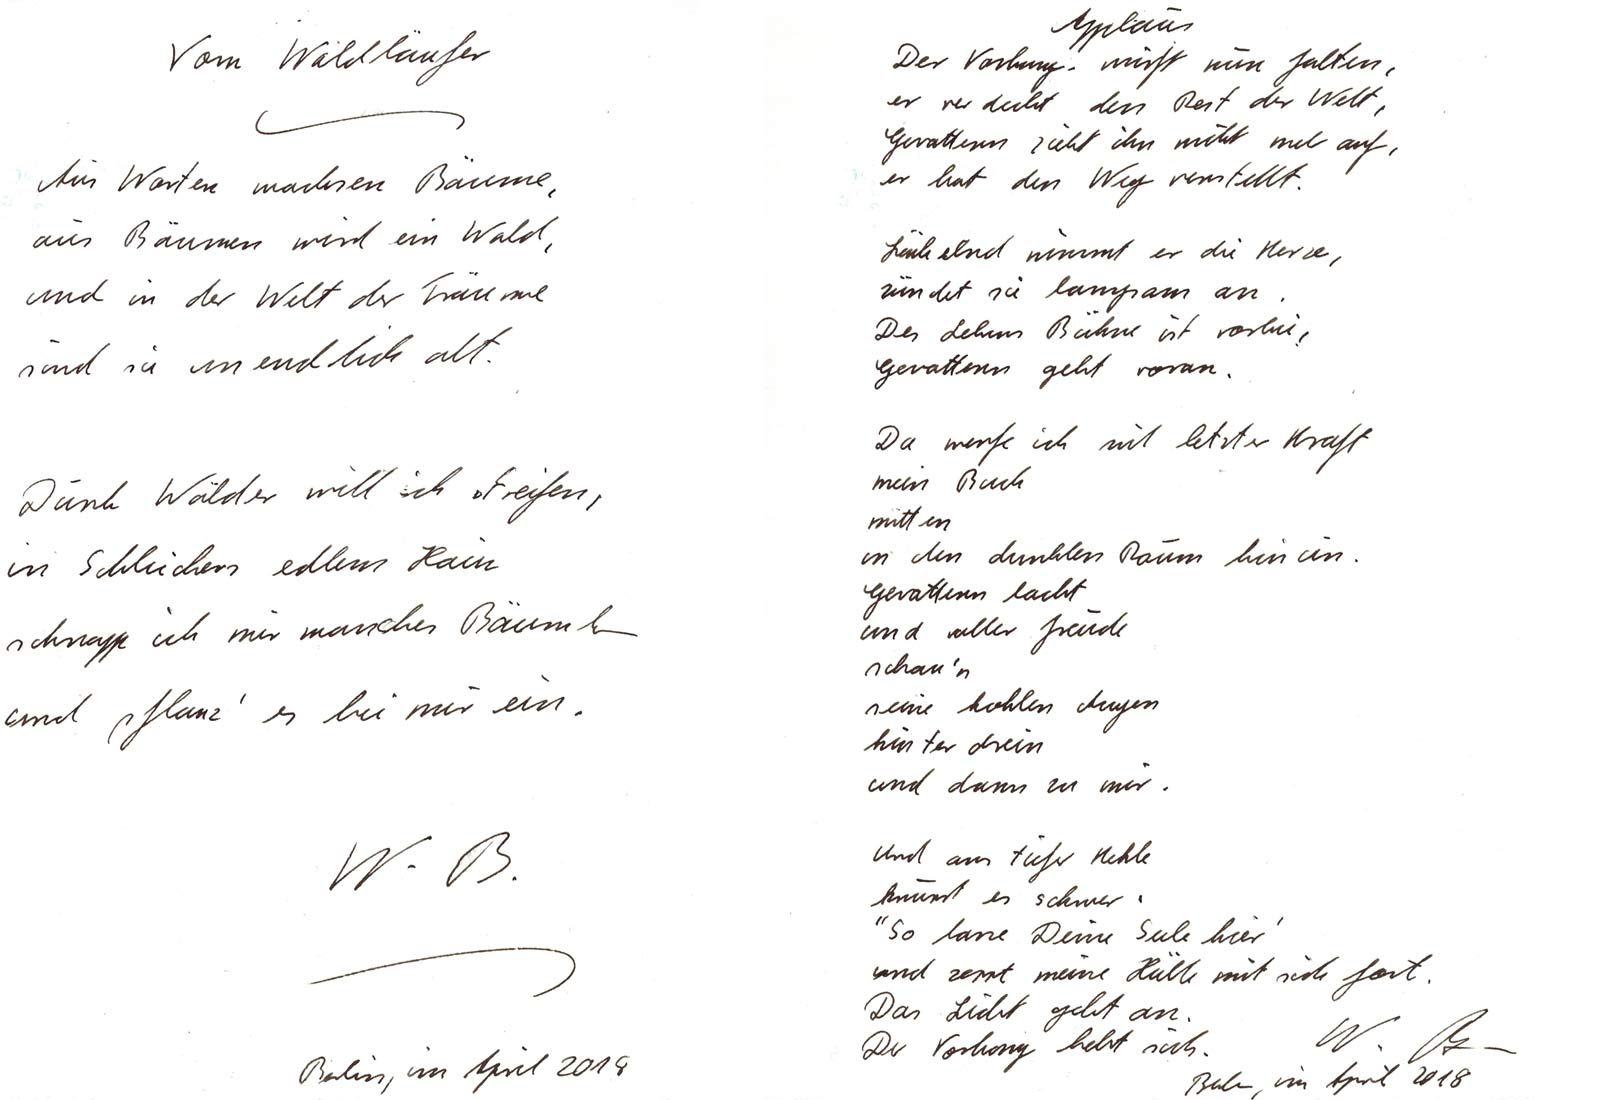 Vom Waldläufer
Aus Worten wachsen Bäume,
aus Bäumen wird ein Wald,
und in der Welt der Träume
sind sie unendlich alt.
Durch Wälder will ich streifen,
in Schleichers edlem Hain
schnapp ich mir manches Bäumlein
und pflanz' es bei mir ein.
W. B.
Berlin, im April 2018
Applaus
Der Vorhang wirft nun Falten,
er verdeckt den Rest der Welt,
Gevattern zieht ihn nicht mehr auf,
er hat den Weg verstellt.
Lächelnd nimmt er die Kerze,
zündet sie langsam an.
Des Lebens Bühne ist vorbei,
Gevattern geht voran.
Da werfe ich mit letzter Kraft
mein Buch
mitten
in den dunklen Raum hinein.
Gevattern lacht
und voller Freude
schau'n
seine hohlen Augen
hinterdrein
und dann zu mir.
Und aus tiefer Kehle
knurrt es schwer:
"So lasse Deine Seele hier'
und zerrt meine Hülle mit sich fort.
Das Licht geht an.
Der Vorhang hebt sich.
W. B.
Berlin, im April 2018